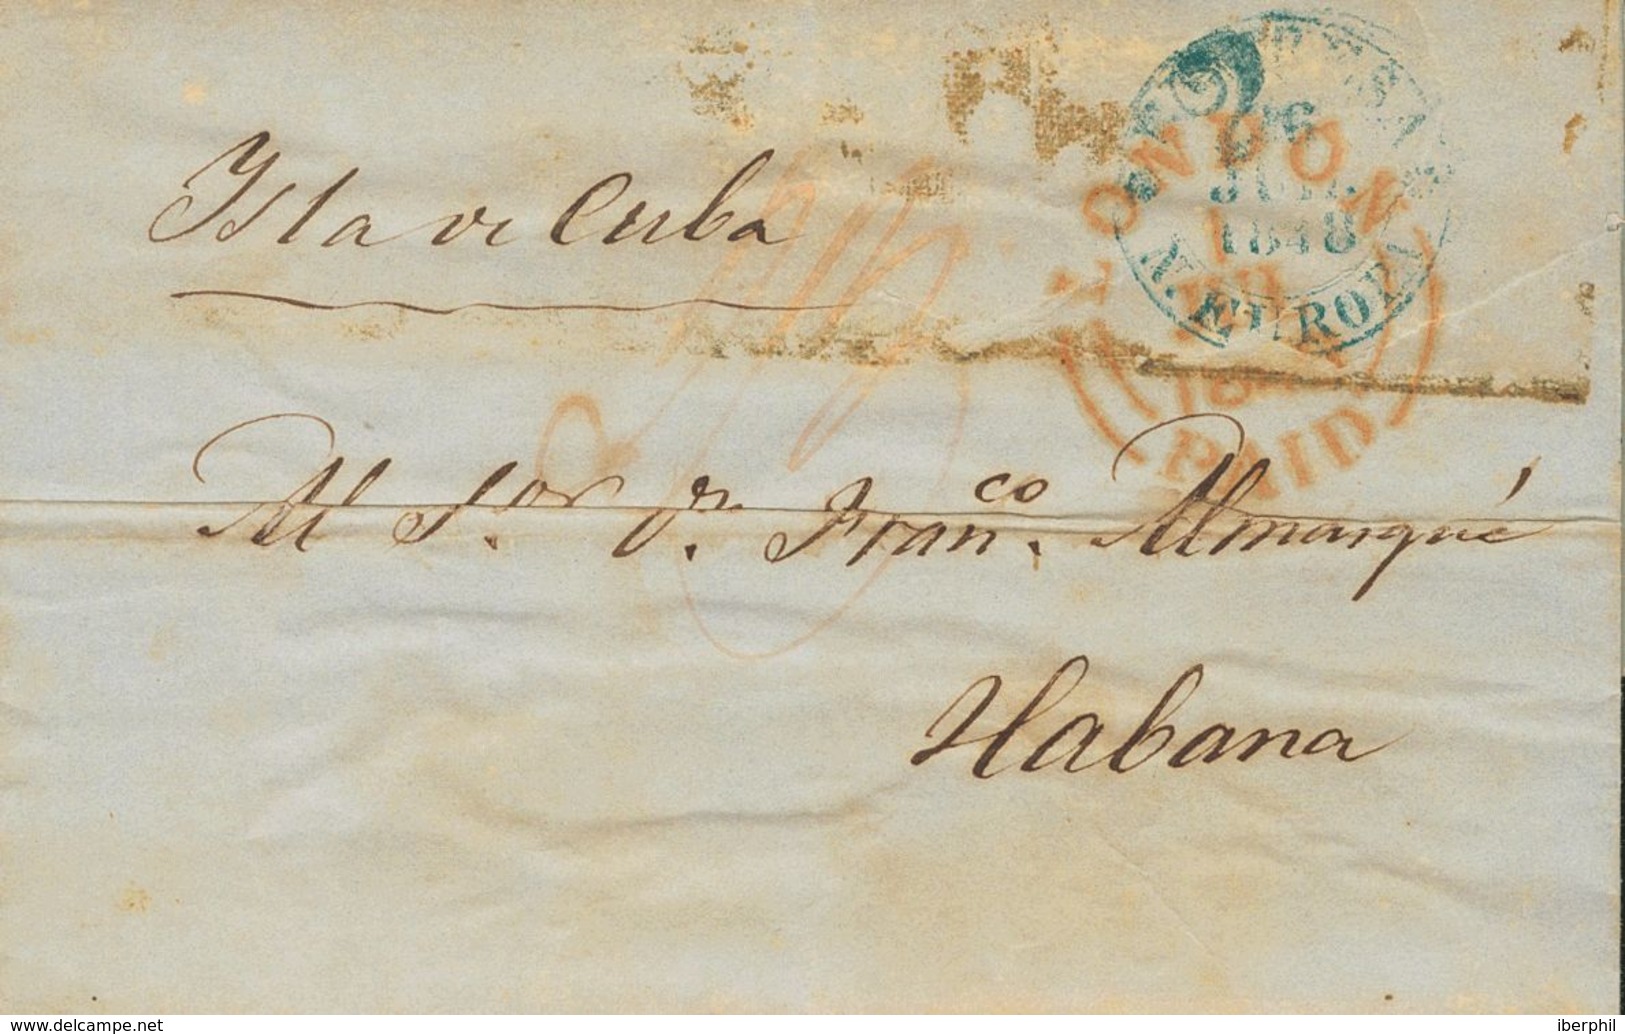 Isla de Cuba
26
JUL
1848
N. EUROPA
LONDON
PAID
Al S.or D.n Fran.co Almarqué
Habana
delcampe.net
iberphil